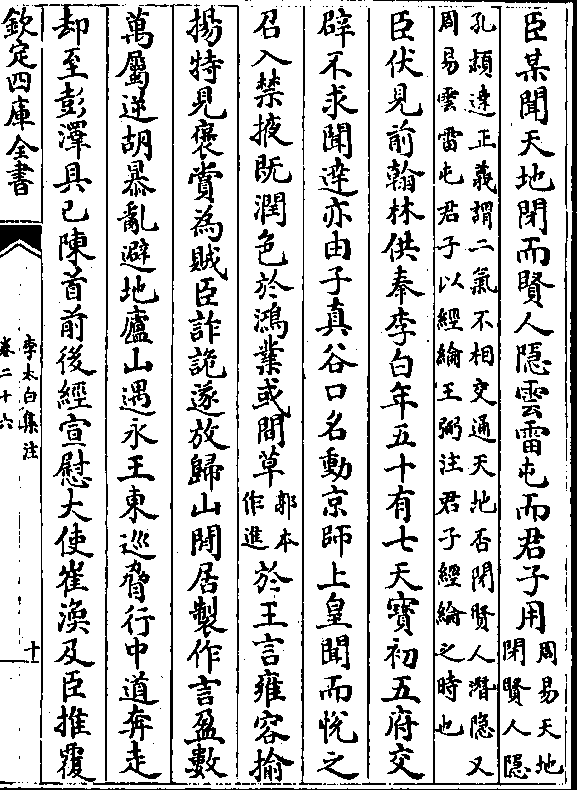 臣某聞天地閉而賢人隱雲雷屯而君子用周易天地閉賢人隱
孔穎達正義謂二氣不相交通天地否閉賢人潛隐又
周易雲雷屯君子以經綸王弼注君子經綸之時也
臣伏見前翰林供奉李白年五十有七天寶初五府交
辟不求聞達亦由子真谷口名動京師上皇聞而悅之
召入禁掖既潤色於鴻業或間草郭本作進於王言雍容揄
揚特見褒賞為賊臣詐詭遂放歸山閒居製作言盈數
萬屬逆胡暴亂避地廬山遇永王東巡脅行中道奔走
却至彭澤具已陳首前後經宣慰大使崔渙及臣推覆
欽定四庫全書
李太白集注
卷二十六
十